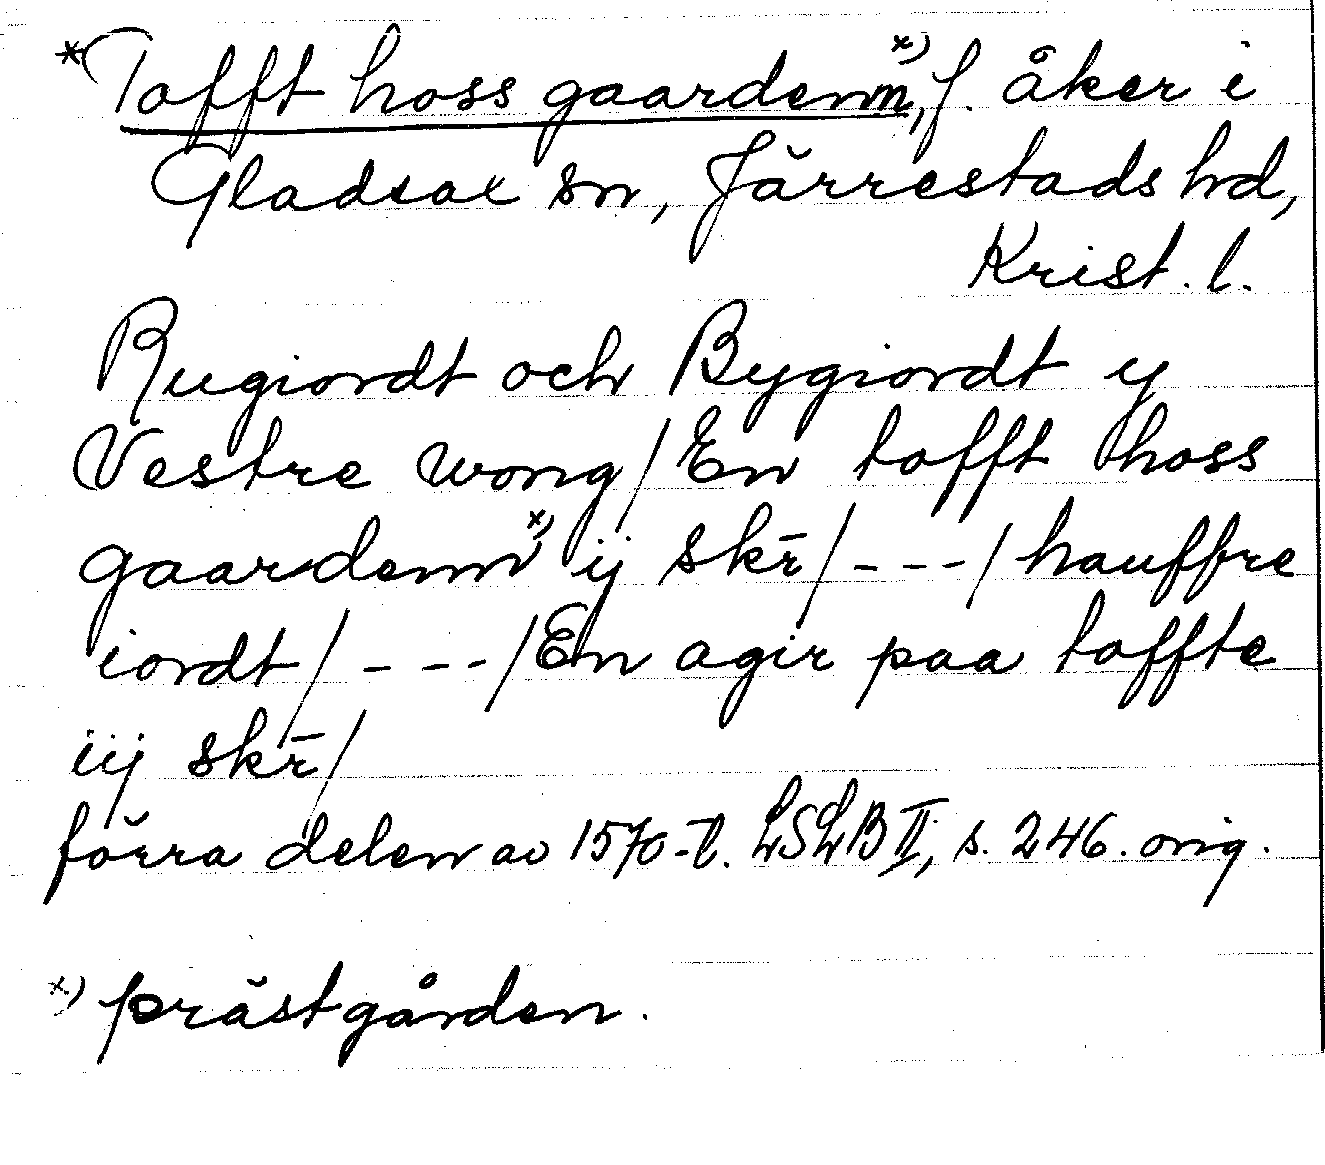 *Tofft hoss gaardenn,ˣ⁾ f. åker i
Gladsax sn, Järrestads hd,
Krist. l.
Rugiordt och Bygiordt y
Vestre wong / En tofft hoss
gaardennˣ⁾ ij skr̄ / - - - / hauffre
iordt / - - - / En agir paa toffte
iij skr̄ /
förra delen av 1570-t. LSLB II, s. 246. orig.
ˣ⁾ prästgården.